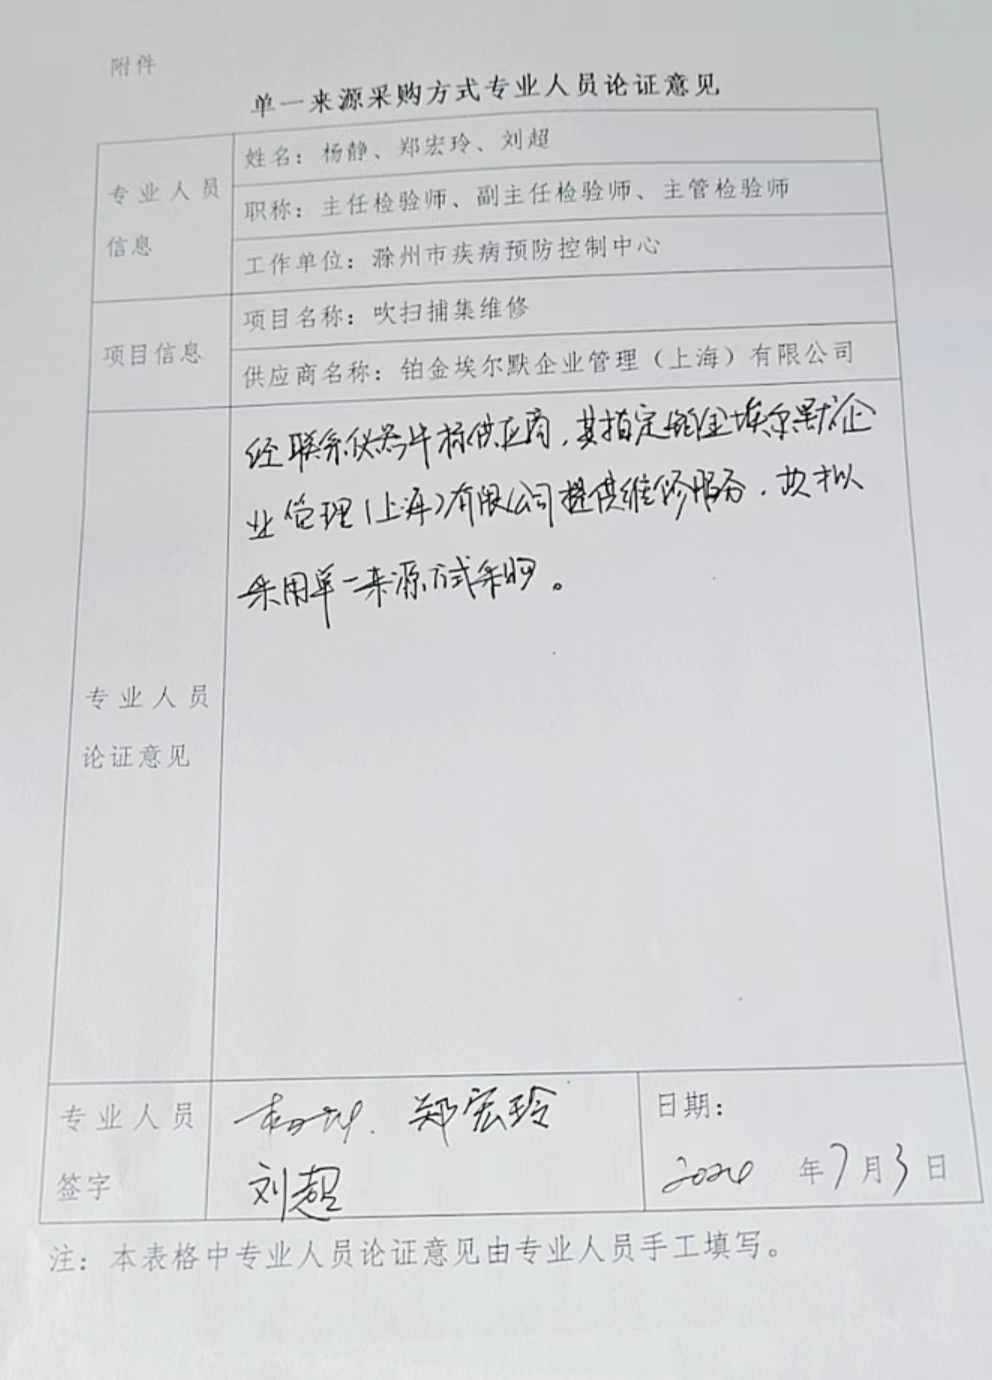 附件
单一来源采购方式专业人员论证意见
专业人员
信息
姓名：杨静、郑宏玲、刘超
职称：主任检验师、副主任检验师、主管检验师
工作单位：滁州市疾病预防控制中心
项目信息
项目名称：吹扫捕集维修
供应商名称：铂金埃尔默企业管理（上海）有限公司
专业人员
论证意见
经联系仪器中标供应商，其指定铂金埃尔默企
业管理（上海）有限公司提供维修服务，故拟
采用单一来源方式采购。
专业人员
签字
郑宏玲
刘超
日期：
2024 年7月3日
注：本表格中专业人员论证意见由专业人员手工填写。